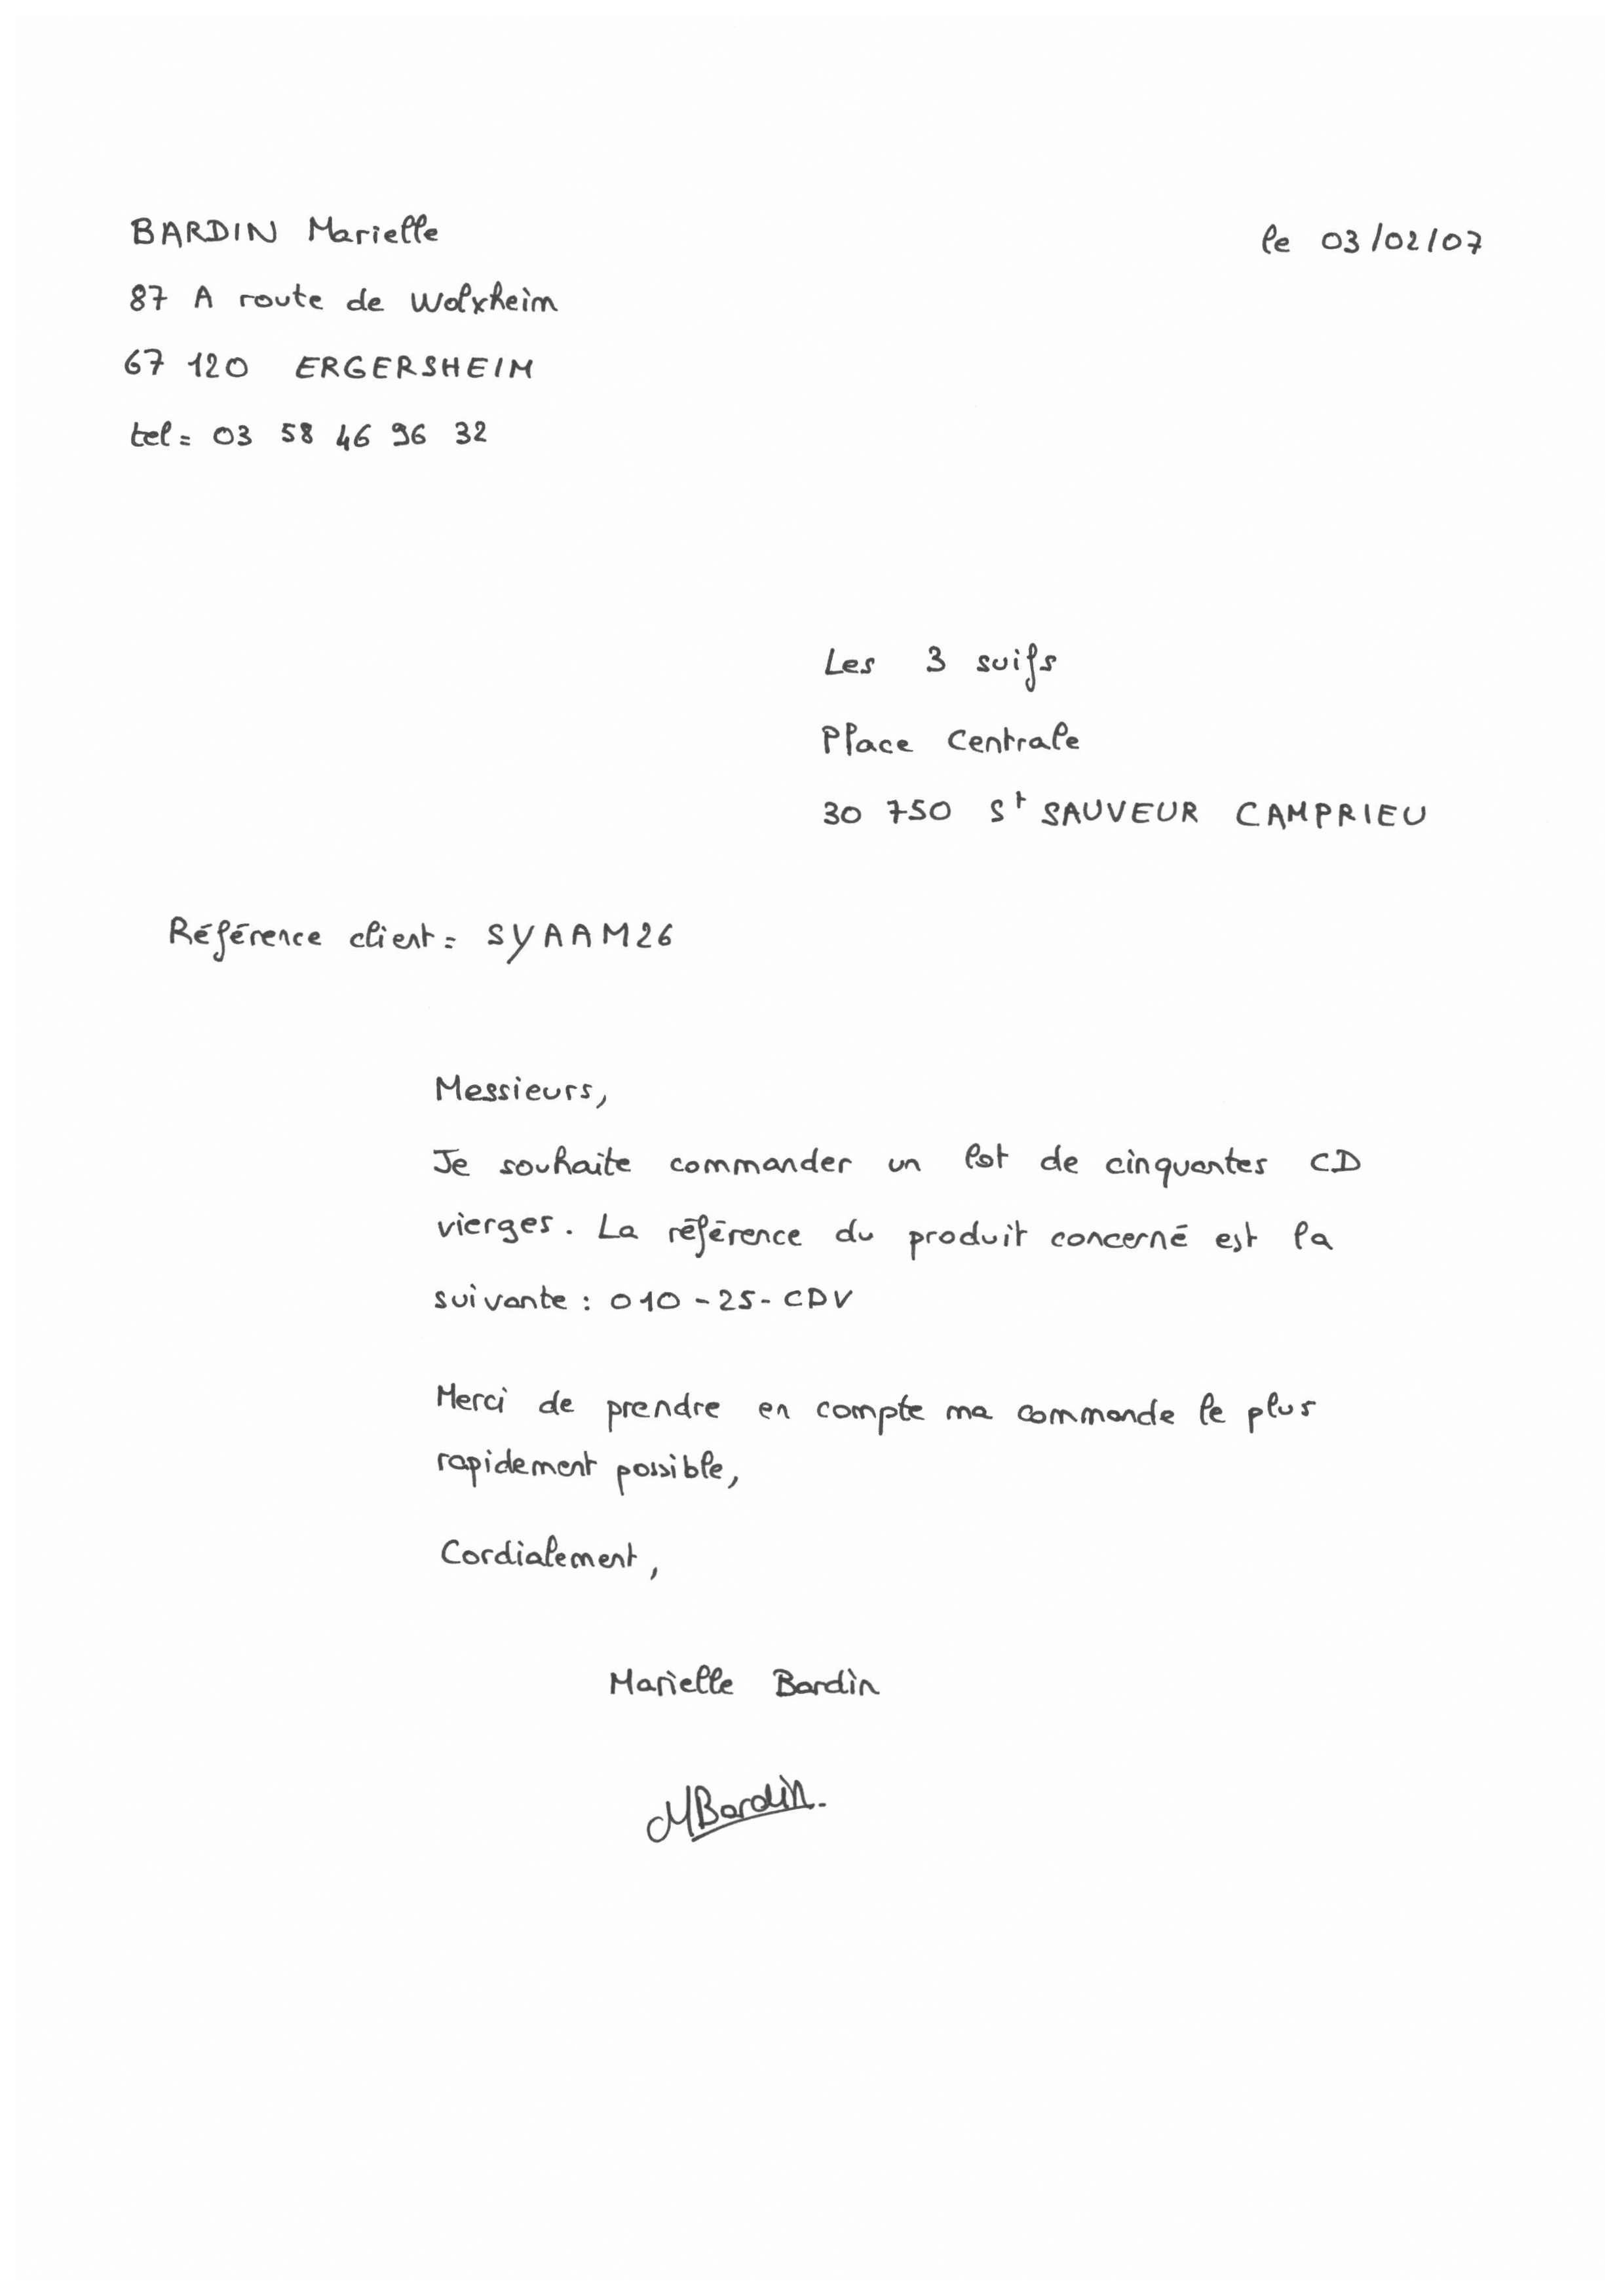 BARDIN Marielle
le 03/02/07
87 A route de Wolxheim
67 120 ERGERSHEIM
tel = 03 58 46 96 32
Les 3 suifs
Place Centrale
30 750 St SAUVEUR CAMPRIEU
Référence client = SYAAM26
Messieurs,
Je souhaite commander un lot de cinquantes CD
vierges. La référence du produit concerné est la
suivante : 010-25-CDV
Merci de prendre en compte ma commande le plus
rapidement possible,
Cordialement,
Marielle Bardin
MBardin.